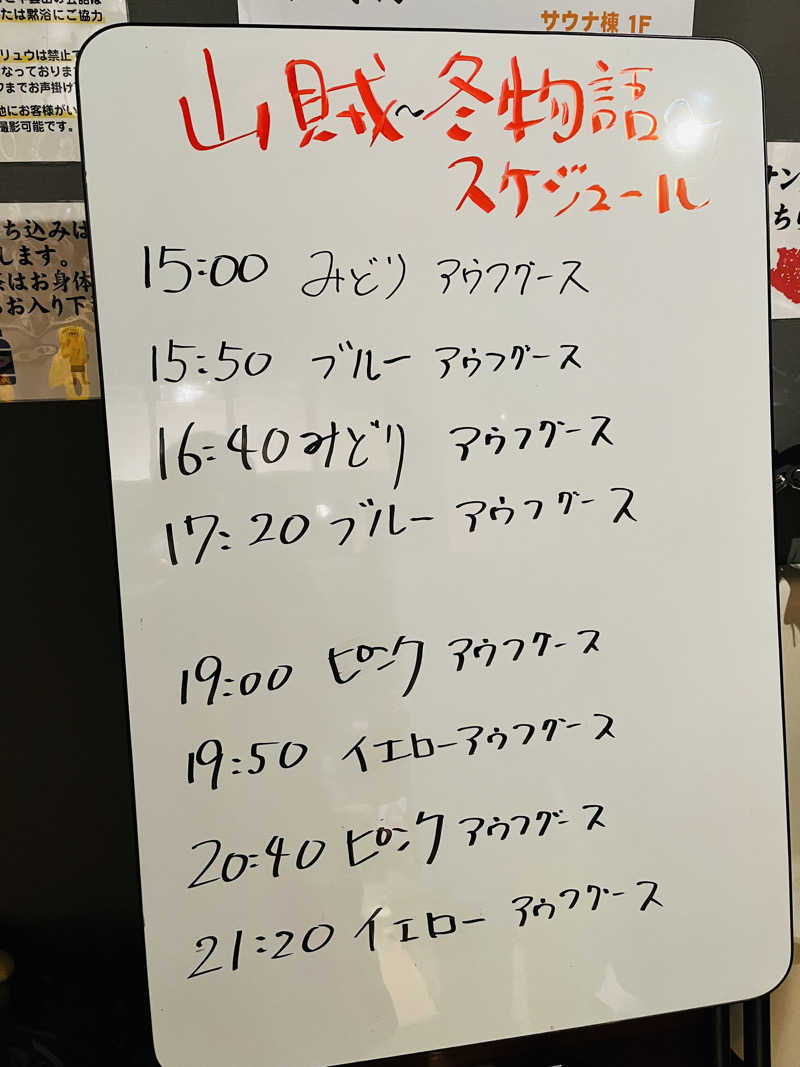 たは黙浴にご協力
サウナ棟 1F
リュウは禁止
なっておりま
までお声掛け
にお客様がい
撮影可能です。
山賊~冬物語~
スケジュール
ち込みは
します。
はお身体
お入り下
15:00 みどり アウフグース
15:50 ブルー アウフグース
16:40 みどり アウフグース
17:20 ブルー アウフグース
19:00 ピンク アウフグース
19:50 イエローアウフグース
20:40 ピンク アウフグース
21:20 イエロー アウフグース